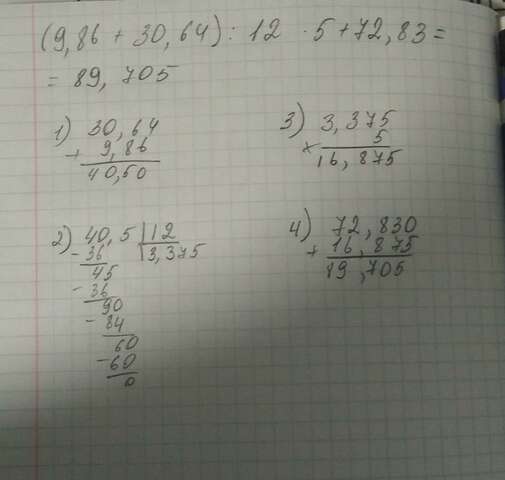 (9,86 + 30,64) : 12 · 5 + 72,83 =
= 89,705
1) 30,64
+ 9,86
40,50
2) 40,5 | 12
- 36 | 3,375
45
- 36
90
- 84
60
- 60
0
3) 3,375
× 5
16,875
4) 72,830
+ 16,875
89,705